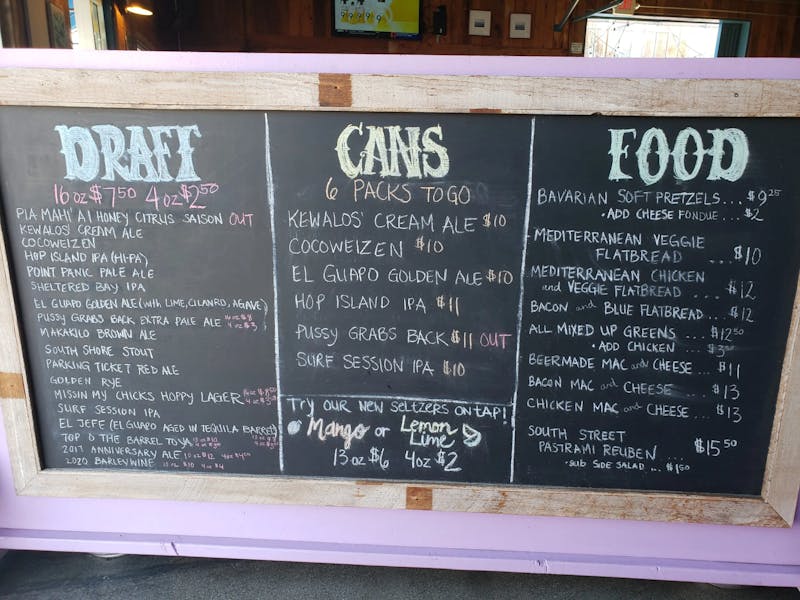 DRAFT
16 oz $7.50 4 oz $2.50
PIA MAHI' AI HONEY CITRUS SAISON OUT
KEWALOS' CREAM ALE
COCOWEIZEN
HOP ISLAND IPA (HI-PA)
POINT PANIC PALE ALE
SHELTERED BAY IPA
EL GUAPO GOLDEN ALE (with LIME, CILANRO, AGAVE)
PUSSY GRABS BACK EXTRA PALE ALE 16 oz $8
4 oz $3
MAKAKILO BROWN ALE
SOUTH SHORE STOUT
PARKING TICKET RED ALE
GOLDEN RYE
MISSIN MY CHICKS HOPPY LAGER
SURF SESSION IPA
EL JEFE (EL GUAPO AGED IN TEQUILA BARREL)
TOP O THE BARREL TO YA
2017 ANNIVERSARY ALE 10 oz $12 4 oz $4.50
2020 BARLEYWINE
CANS
6 PACKS TO GO
KEWALOS' CREAM ALE $10
COCOWEIZEN $10
EL GUAPO GOLDEN ALE $10
HOP ISLAND IPA $11
PUSSY GRABS BACK $11 OUT
SURF SESSION IPA $10
Try our new Seltzers on TAP!
Mango or Lemon
Lime
13 oz $6 4 oz $2
FOOD
BAVARIAN SOFT PRETZELS... $9.25
• ADD CHEESE FONDUE... $2
MEDITERRANEAN VEGGIE
FLATBREAD ... $10
MEDITERRANEAN CHICKEN
and VEGGIE FLATBREAD ... $12
BACON and BLUE FLATBREAD.. $12
ALL MIXED UP GREENS ... $12.50
• ADD CHICKEN ... $3.50
BEERMADE MAC and CHEESE ... $11
BACON MAC and CHEESE ... $13
CHICKEN MAC and CHEESE... $13
SOUTH STREET
PASTRAMI REUBEN ... $15.50
• SUB SIDE SALAD ... $1.50